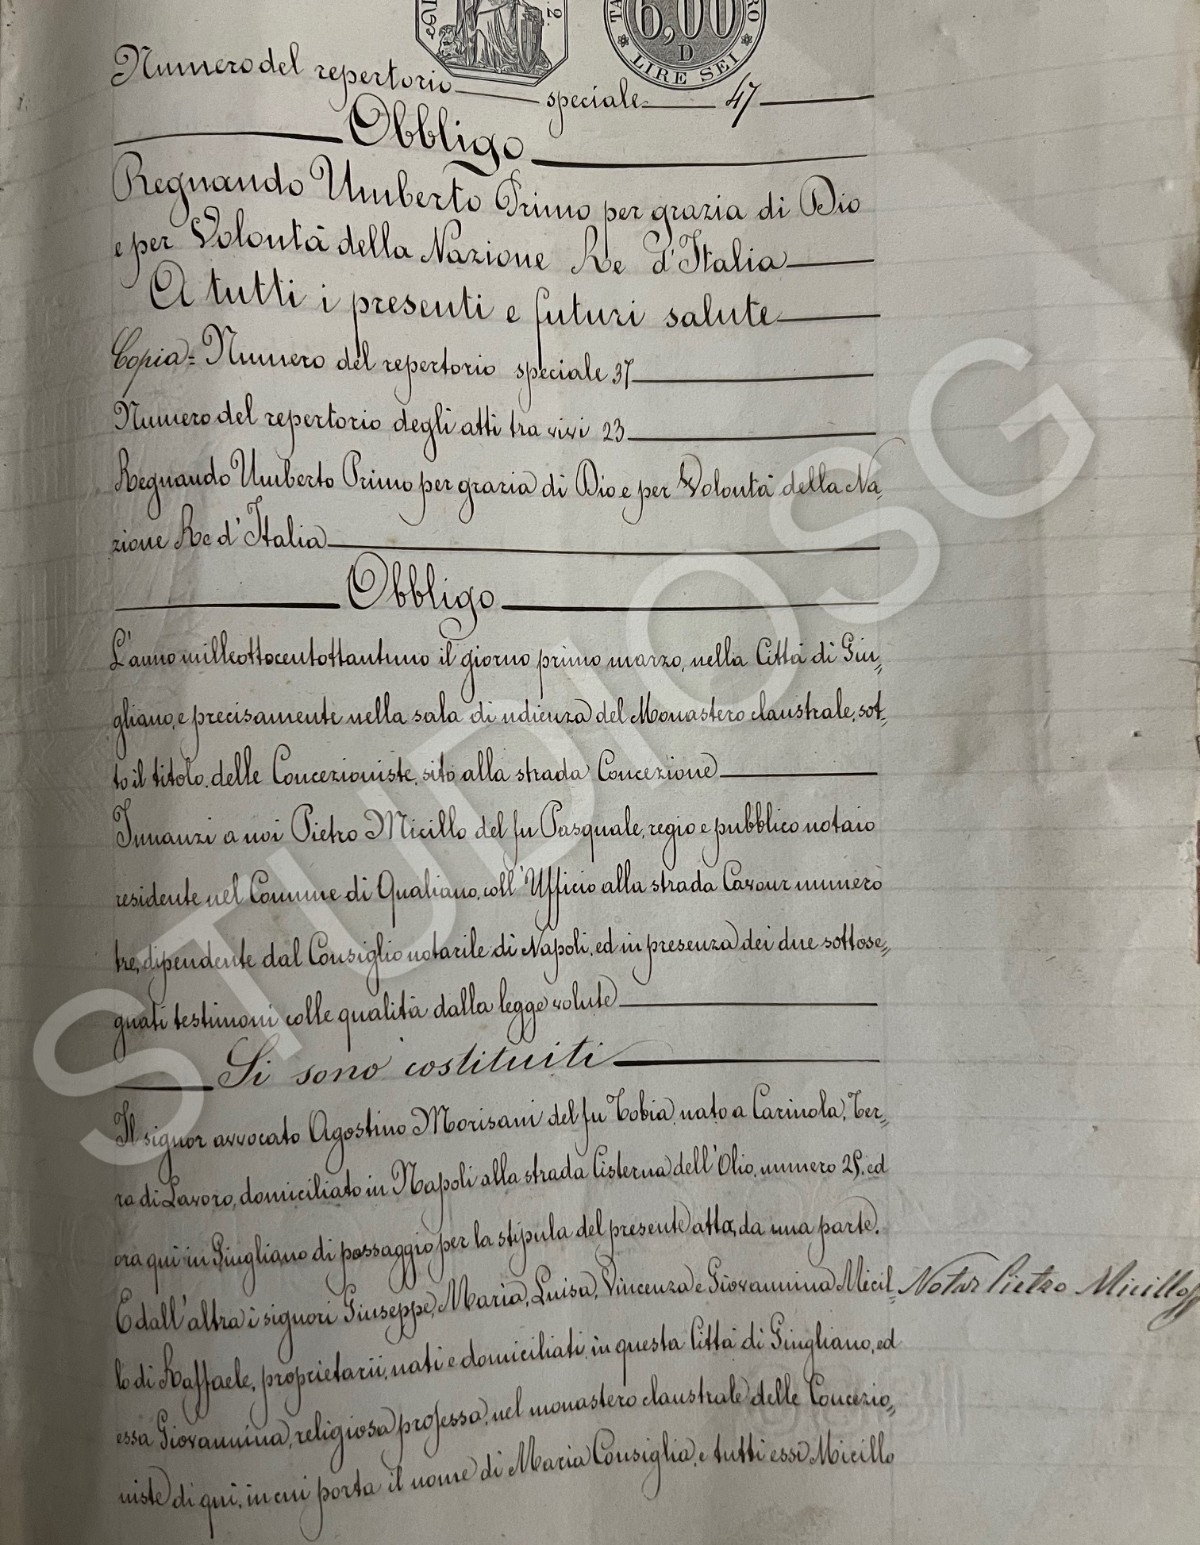 6,00
D
LIRE SEI
Numero del repertorio speciale 47
Obbligo
Regnando Umberto Primo per grazia di Dio
e per Volontà della Nazione Re d'Italia
A tutti i presenti e futuri salute
Copia = Numero del repertorio speciale 37
Numero del repertorio degli atti tra vivi 23
Regnando Umberto Primo per grazia di Dio e per Volontà della Na„
zione Re d'Italia
Obbligo
L'anno milleottocentottantuno il giorno primo marzo, nella Città di Giu„
gliano, e precisamente nella sala di udienza del Monastero claustrale, sot„
to il titolo delle Concezioniste, sito alla strada Concezione
Innanzi a noi Pietro Micillo del fu Pasquale, regio e pubblico notaio
residente nel Comune di Qualiano, coll'Ufficio alla strada Cavour numero
tre, dipendente dal Consiglio notarile di Napoli, ed in presenza dei due sottose„
gnati testimoni colle qualità dalla legge volute
Si sono costituiti
Il signor avvocato Agostino Morisani del fu Tobia, nato a Carinola, Ter„
ra di Lavoro, domiciliato in Napoli alla strada Cisterna dell'Olio, numero 25, ed
ora qui in Giugliano di passaggio per la stipula del presente atto, da una parte.
E dall'altra i signori Giuseppe, Maria, Luisa, Vincenza e Giovannina Micil„
Notar Pietro Micillo
lo di Raffaele, proprietarii, nati e domiciliati in questa Città di Giugliano, ed
essa Giovannina, religiosa professa, nel monastero claustrale delle Concezio„
niste di qui, in cui porta il nome di Maria Consiglia, e tutti essi Micillo
STUDIOSG